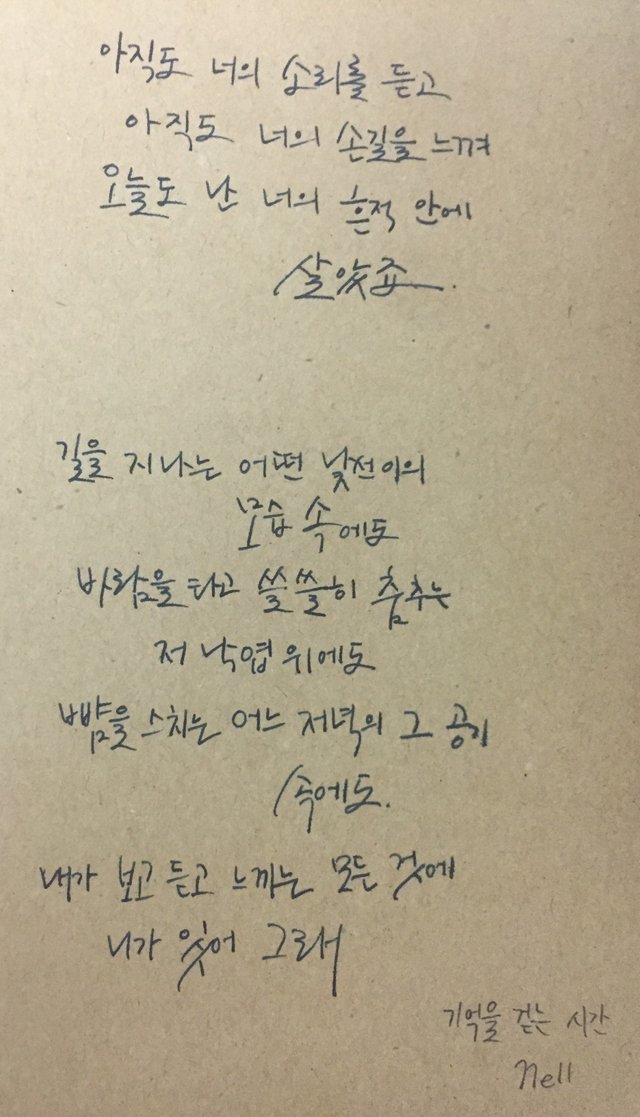 아직도 너의 소리를 듣고
아직도 너의 손길을 느껴
오늘도 난 너의 흔적 안에
살았죠.
길을 지나는 어떤 낯선이의
모습 속에도
바람을 타고 쓸쓸히 춤추는
저 낙엽 위에도
뺨을 스치는 어느 저녁의 그 공기
속에도.
내가 보고 듣고 느끼는 모든 것에
니가 있어 그래서
기억을 걷는 시간
Nell